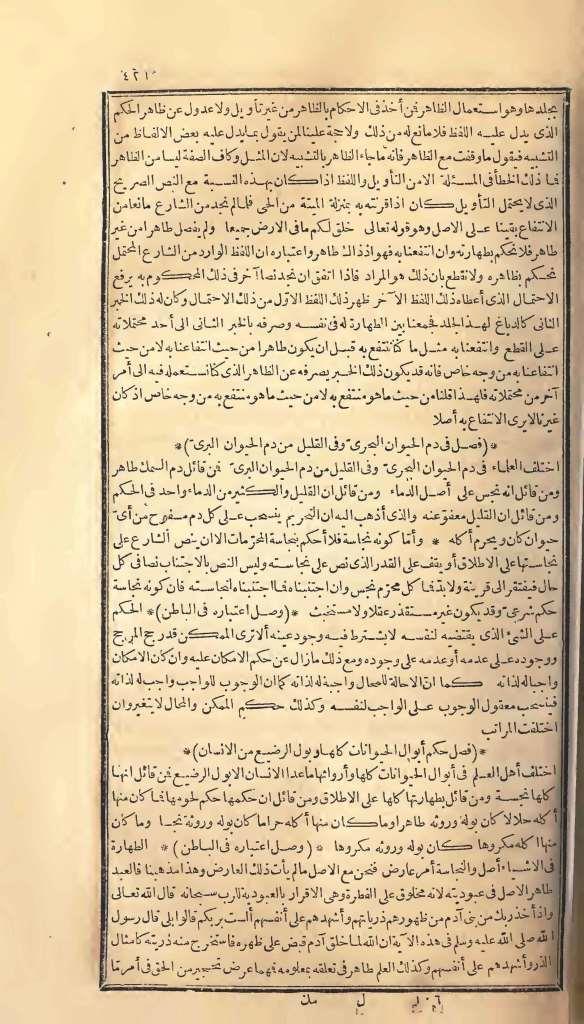 ٤٢١
بجلدها وهو استعمال الظاهر فمن أخذ فى الاحكام بالظاهر من غير تأويل ولا عدول عن ظاهر الحكم
الذى يدل عليه اللفظ فلا مانع له من ذلك ولا حجة علينا لمن يقول بما يدل عليه بعض الالفاظ من
التشبيه فيقول ما وقفت مع الظاهر فانه ما جاء الظاهر بالتشبيه لان المثل وكاف الصفة ليسا من الظاهر
فما ذلك الخطأ فى المسئلة الا من التأويل واللفظ اذا كان بهذه النسبة مع النص الصريح
الذى لا يحتمل التأويل كان اذا قرنته به بمنزلة الميتة من الحى فلما لم نجد من الشارع مانعا من
الانتفاع بقينا على الاصل وهو قوله تعالى خلق لكم ما فى الارض جميعا ولم يفصل طاهرا من غير
طاهر فلا نحكم بطهارته وان انتفعنا به فهو اذ ذاك طاهر واعتباره ان اللفظ الوارد من الشارع المحتمل
نحكم بظاهره ولا نقطع بان ذلك هو المراد فاذا اتفق ان نجد نصا آخر فى ذلك المحكوم به يرفع
الاحتمال الذى أعطاه ذلك اللفظ الآخر طهر ذلك اللفظ الاول من ذلك الاحتمال وكان له ذلك الخبر
الثانى كالدباغ لهذا الجلد فجمعنا بين الطهارة له فى نفسه وصرفه بالخبر الثانى الى أحد محتملاته
على القطع وانتفعنا به مثل ما كنا ننتفع به قبل ان يكون طاهرا من حيث انتفاعنا به لا من حيث
انتفاعنا به من وجه خاص فانه قد يكون ذلك الخبر يصرفه عن الظاهر الذى كنا نستعمله فيه الى أمر
آخر من محتملاته فلهذا قلنا من حيث ما هو منتفع به لا من حيث ما هو منتفع به من وجه خاص اذ كان
غيرنا لا يرى الانتفاع به أصلا
*(فصل فى دم الحيوان البحرى وفى القليل من دم الحيوان البرى)*
اختلف العلماء فى دم الحيوان البحرى وفى القليل من دم الحيوان البرى فمن قائل دم السمك طاهر
ومن قائل انه نجس على أصل الدماء ومن قائل ان القليل والكثير من الدماء واحد فى الحكم
ومن قائل ان القليل معفو عنه والذى أذهب اليه ان التحريم ينسحب على كل دم مسفوح من أى
حيوان كان ويحرم أكله * وأما كونه نجاسة فلا أحكم بنجاسة المحرمات الا ان ينص الشارع على
نجاستها على الاطلاق أو يقف على القدر الذى نص على نجاسته وليس النص بالاجتناب نصا فى كل
حال فيفتقر الى قرينة ولا بد فما كل محرم نجس وان اجتنبناه فما اجتنبناه لنجاسته فان كونه نجاسة
حكم شرعى وقد يكون غير مستقذر عقلا ولا مستخبث *(وصل اعتباره فى الباطن)* الحكم
على الشئ الذى يقتضيه لنفسه لا يشترط فيه وجود عينه ألا ترى الممكن قدر جح المرجح
ووجوده على عدمه أو عدمه على وجوده ومع ذلك ما زال عن حكم الامكان عليه وان كان الامكان
واجبا له لذاته كما ان الاحالة للمحال واجبة له لذاته كما ان الوجوب للواجب واجب له لذاته
فينسحب معقول الوجوب على الواجب لنفسه وكذلك حكم الممكن والمحال لا يتغير وان
اختلفت المراتب
*(فصل حكم أبوال الحيوانات كلها وبول الرضيع من الانسان)*
اختلف أهل العلم فى أبوال الحيوانات كلها وأرواثها ما عدا الانسان الا بول الرضيع فمن قائل انها
كلها نجسة ومن قائل بطهارتها كلها على الاطلاق ومن قائل ان حكمها حكم لحومها فما كان منها
أكله حلالا كان بوله وروثه طاهرا وما كان منها أكله حراما كان بوله وروثه نجسا وما كان
منها أكله مكروها كان بوله وروثه مكروها *(وصل اعتباره فى الباطن)* الطهارة
فى الاشياء أصل والنجاسة أمر عارض فنحن مع الاصل ما لم يأت ذلك العارض وهذا مذهبنا فالعبد
طاهر الاصل فى عبوديته لانه مخلوق على الفطرة وهى الاقرار بالعبودية للرب سبحانه قال الله تعالى
واذ أخذ ربك من بنى آدم من ظهورهم ذرياتهم وأشهدهم على أنفسهم ألست بربكم قالوا بلى قال رسول
الله صلى الله عليه وسلم فى هذه الآية ان الله لما خلق آدم قبض على ظهره فاستخرج منه ذريته كامثال
الذر وأشهدهم على أنفسهم وكذلك العلم طاهر فى تعلقه بمعلومه فهما عرض تحجير من الحق فى أمر ما